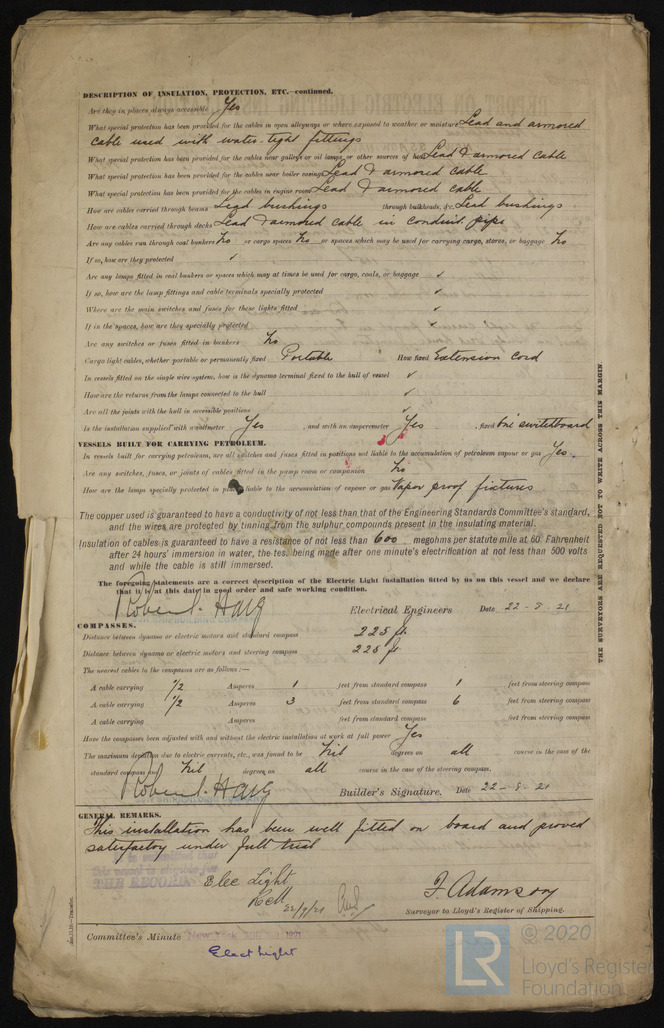 DESCRIPTION OF INSULATION, PROTECTION, ETC.—continued.
Are they in places always accessible Yes
What special protection has been provided for the cables in open alleyways or where exposed to weather or moisture Lead and armored
cable used with water-tight fittings
What special protection has been provided for the cables near galleys or oil lamps or other sources of heat Lead & armored cable
What special protection has been provided for the cables near boiler casings Lead & armored cable
What special protection has been provided for the cables in engine room Lead & armored cable
How are cables carried through beams Lead bushings through bulkheads, &c. Lead bushings
How are cables carried through decks Lead & armored cable in conduit pipe
Are any cables run through coal bunkers No or cargo spaces No or spaces which may be used for carrying cargo, stores, or baggage No
If so, how are they protected ✓
Are any lamps fitted in coal bunkers or spaces which may at times be used for cargo, coals, or baggage ✓
If so, how are the lamp fittings and cable terminals specially protected ✓
Where are the main switches and fuses for these lights fitted ✓
If in the spaces, how are they specially protected ✓
Are any switches or fuses fitted in bunkers No
Cargo light cables, whether portable or permanently fixed Portable How fixed Extension Cord
In vessels fitted on the single wire system, how is the dynamo terminal fixed to the hull of vessel ✓
How are the returns from the lamps connected to the hull ✓
Are all the joints with the hull in accessible positions ✓
Is the installation supplied with a voltmeter Yes, and with an amperemeter Yes, fixed on switchboard
VESSELS BUILT FOR CARRYING PETROLEUM.
In vessels built for carrying petroleum, are all switches and fuses fitted in positions not liable to the accumulation of petroleum vapour or gas Yes.
Are any switches, fuses, or joints of cables fitted in the pump room or companion No
How are the lamps specially protected in places liable to the accumulation of vapour or gas Vapor proof fixtures
The copper used is guaranteed to have a conductivity of not less than that of the Engineering Standards Committee's standard,
and the wires are protected by tinning from the sulphur compounds present in the insulating material.
Insulation of cables is guaranteed to have a resistance of not less than 600 megohms per statute mile at 60° Fahrenheit
after 24 hours' immersion in water, the test being made after one minute's electrification at not less than 500 volts
and while the cable is still immersed.
The foregoing statements are a correct description of the Electric Light installation fitted by us on this vessel and we declare
that it is at this date in good order and safe working condition.
Robert Haig Electrical Engineers Date 22-8-21
COMPASSES.
Distance between dynamo or electric motors and standard compass 225 ft
Distance between dynamo or electric motors and steering compass 225 ft
The nearest cables to the compasses are as follows:—
A cable carrying 1/2 Amperes 1 feet from standard compass 1 feet from steering compass
A cable carrying 1/2 Amperes 3 feet from standard compass 6 feet from steering compass
A cable carrying Amperes feet from standard compass feet from steering compass
Have the compasses been adjusted with and without the electric installation at work at full power Yes
The maximum deviation due to electric currents, etc., was found to be Nil degrees on all course in the case of the
standard compass and Nil degrees on all course in the case of the steering compass.
Robert Haig Builder's Signature. Date 22-8-21
GENERAL REMARKS.
This installation has been well fitted on board and proved
satisfactory under full trial
THE RECORD
Elec Light
F. Adamson
Surveyor to Lloyd's Register of Shipping.
Committee's Minute New York 1921
Elect Light
THE SURVEYORS ARE REQUESTED NOT TO WRITE ACROSS THIS MARGIN
LR
© 2020
Lloyd's Register
Foundation